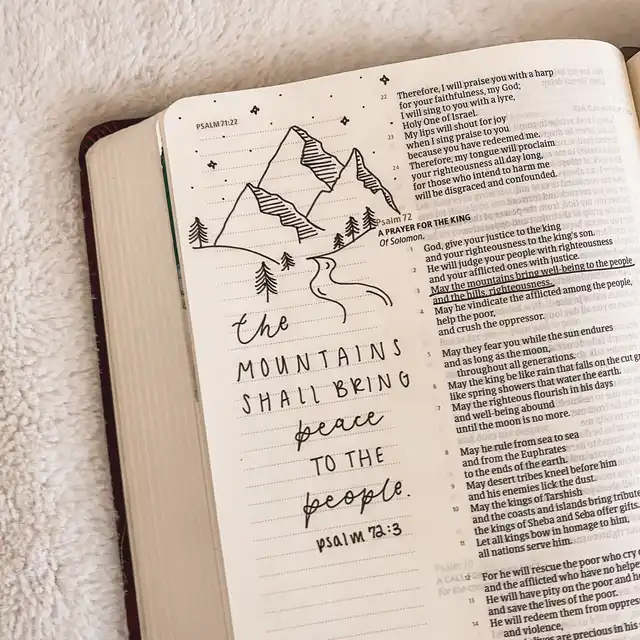 PSALM 71:22
the
MOUNTAINS
SHALL BRING
peace
TO THE
people.
psalm 72:3
22 Therefore, I will praise you with a harp
for your faithfulness, my God;
I will sing to you with a lyre,
Holy One of Israel.
23 My lips will shout for joy
when I sing praise to you
because you have redeemed me.
24 Therefore, my tongue will proclaim
your righteousness all day long,
for those who intend to harm me
will be disgraced and confounded.
Psalm 72
A PRAYER FOR THE KING
Of Solomon.
1 God, give your justice to the king
and your righteousness to the king's son.
2 He will judge your people with righteousness
and your afflicted ones with justice.
3 May the mountains bring well-being to the people
and the hills, righteousness.
4 May he vindicate the afflicted among the people,
help the poor,
and crush the oppressor.
5 May they fear you while the sun endures
and as long as the moon,
throughout all generations.
6 May the king be like rain that falls on the cut
like spring showers that water the earth.
7 May the righteous flourish in his days
and well-being abound
until the moon is no more.
8 May he rule from sea to sea
and from the Euphrates
to the ends of the earth.
9 May desert tribes kneel before him
and his enemies lick the dust.
10 May the kings of Tarshish
and the coasts and islands bring
the kings of Sheba and Seba offer gifts.
11 Let all kings bow in homage to him,
all nations serve him.
12 For he will rescue the poor who
and the afflicted who have no
13 He will have pity on the poor and
and save the lives of the poor.
14 He will redeem them from
and violence,
lives are precious in his